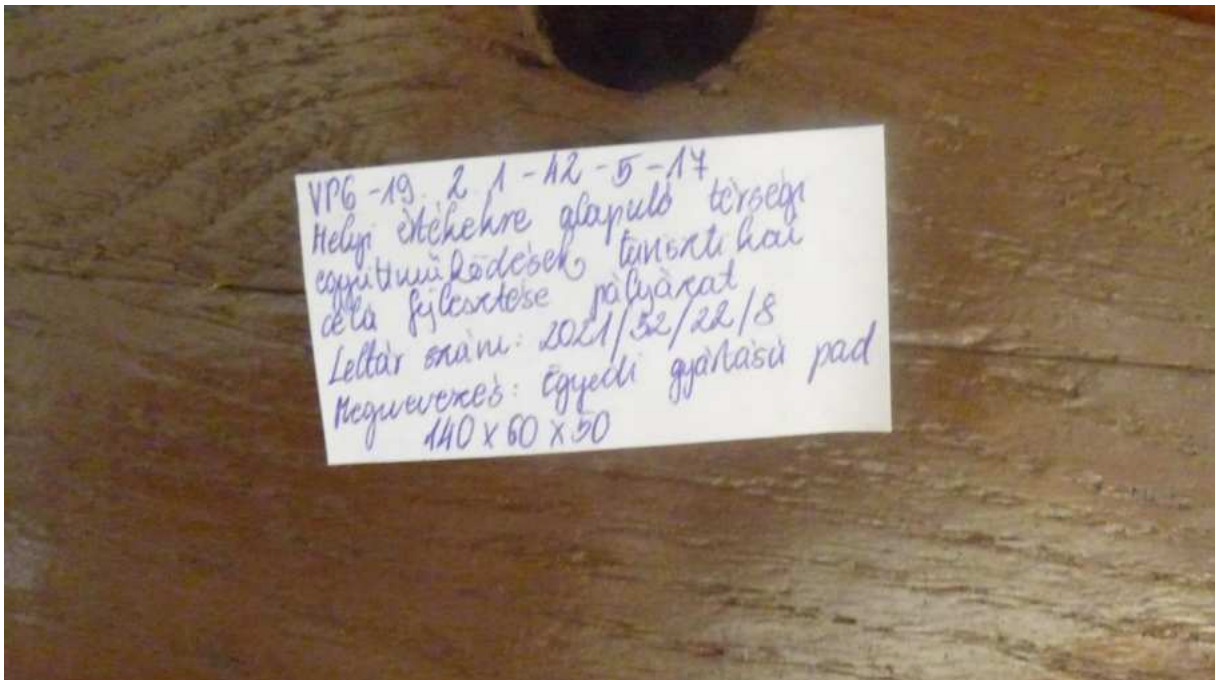 VP6-19.2.1-42-5-17
Helyi értékekre alapuló térségi
együttműködések turisztikai
célú fejlesztése pályázat
Leltár szám: 2021/32/22/8
Megnevezés: Egyedi gyártású pad
140 x 60 x 50